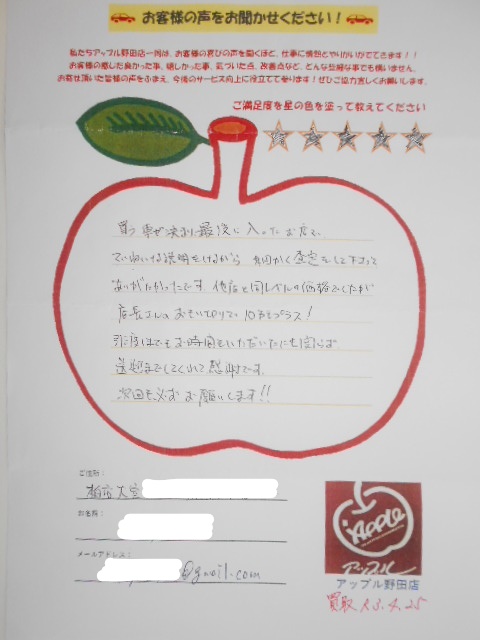 お客様の声をお聞かせください！
私たちアップル野田店一同は、お客様の喜びの声を聞くほど、仕事に情熱とやりがいがでてきます！！
お客様の感じた良かった事、嬉しかった事、気づいた点、改善点など、どんな些細な事でも構いません。
お寄せ頂いた皆様の声をふまえ、今後のサービス向上に役立てて参ります！ぜひご協力宜しくお願いします。
ご満足度を星の色を塗って教えてください
買う車が決まり最後に入ったお店で、
ていねいな説明をしながら 細かく査定をして下さって
ありがたかったです。他店と同レベルの価格でしたが
店長さんのおもいやりで 10万もプラス！
引渡しはとてもお時間をいただいたにも関わらず
送迎までしてくれて感謝です。
次回も必ずお願いします!!
ご住所：
柏市大室
お名前：
メールアドレス：
@gmail.com
APPLE
アップル
アップル野田店
買取 R3.4.25